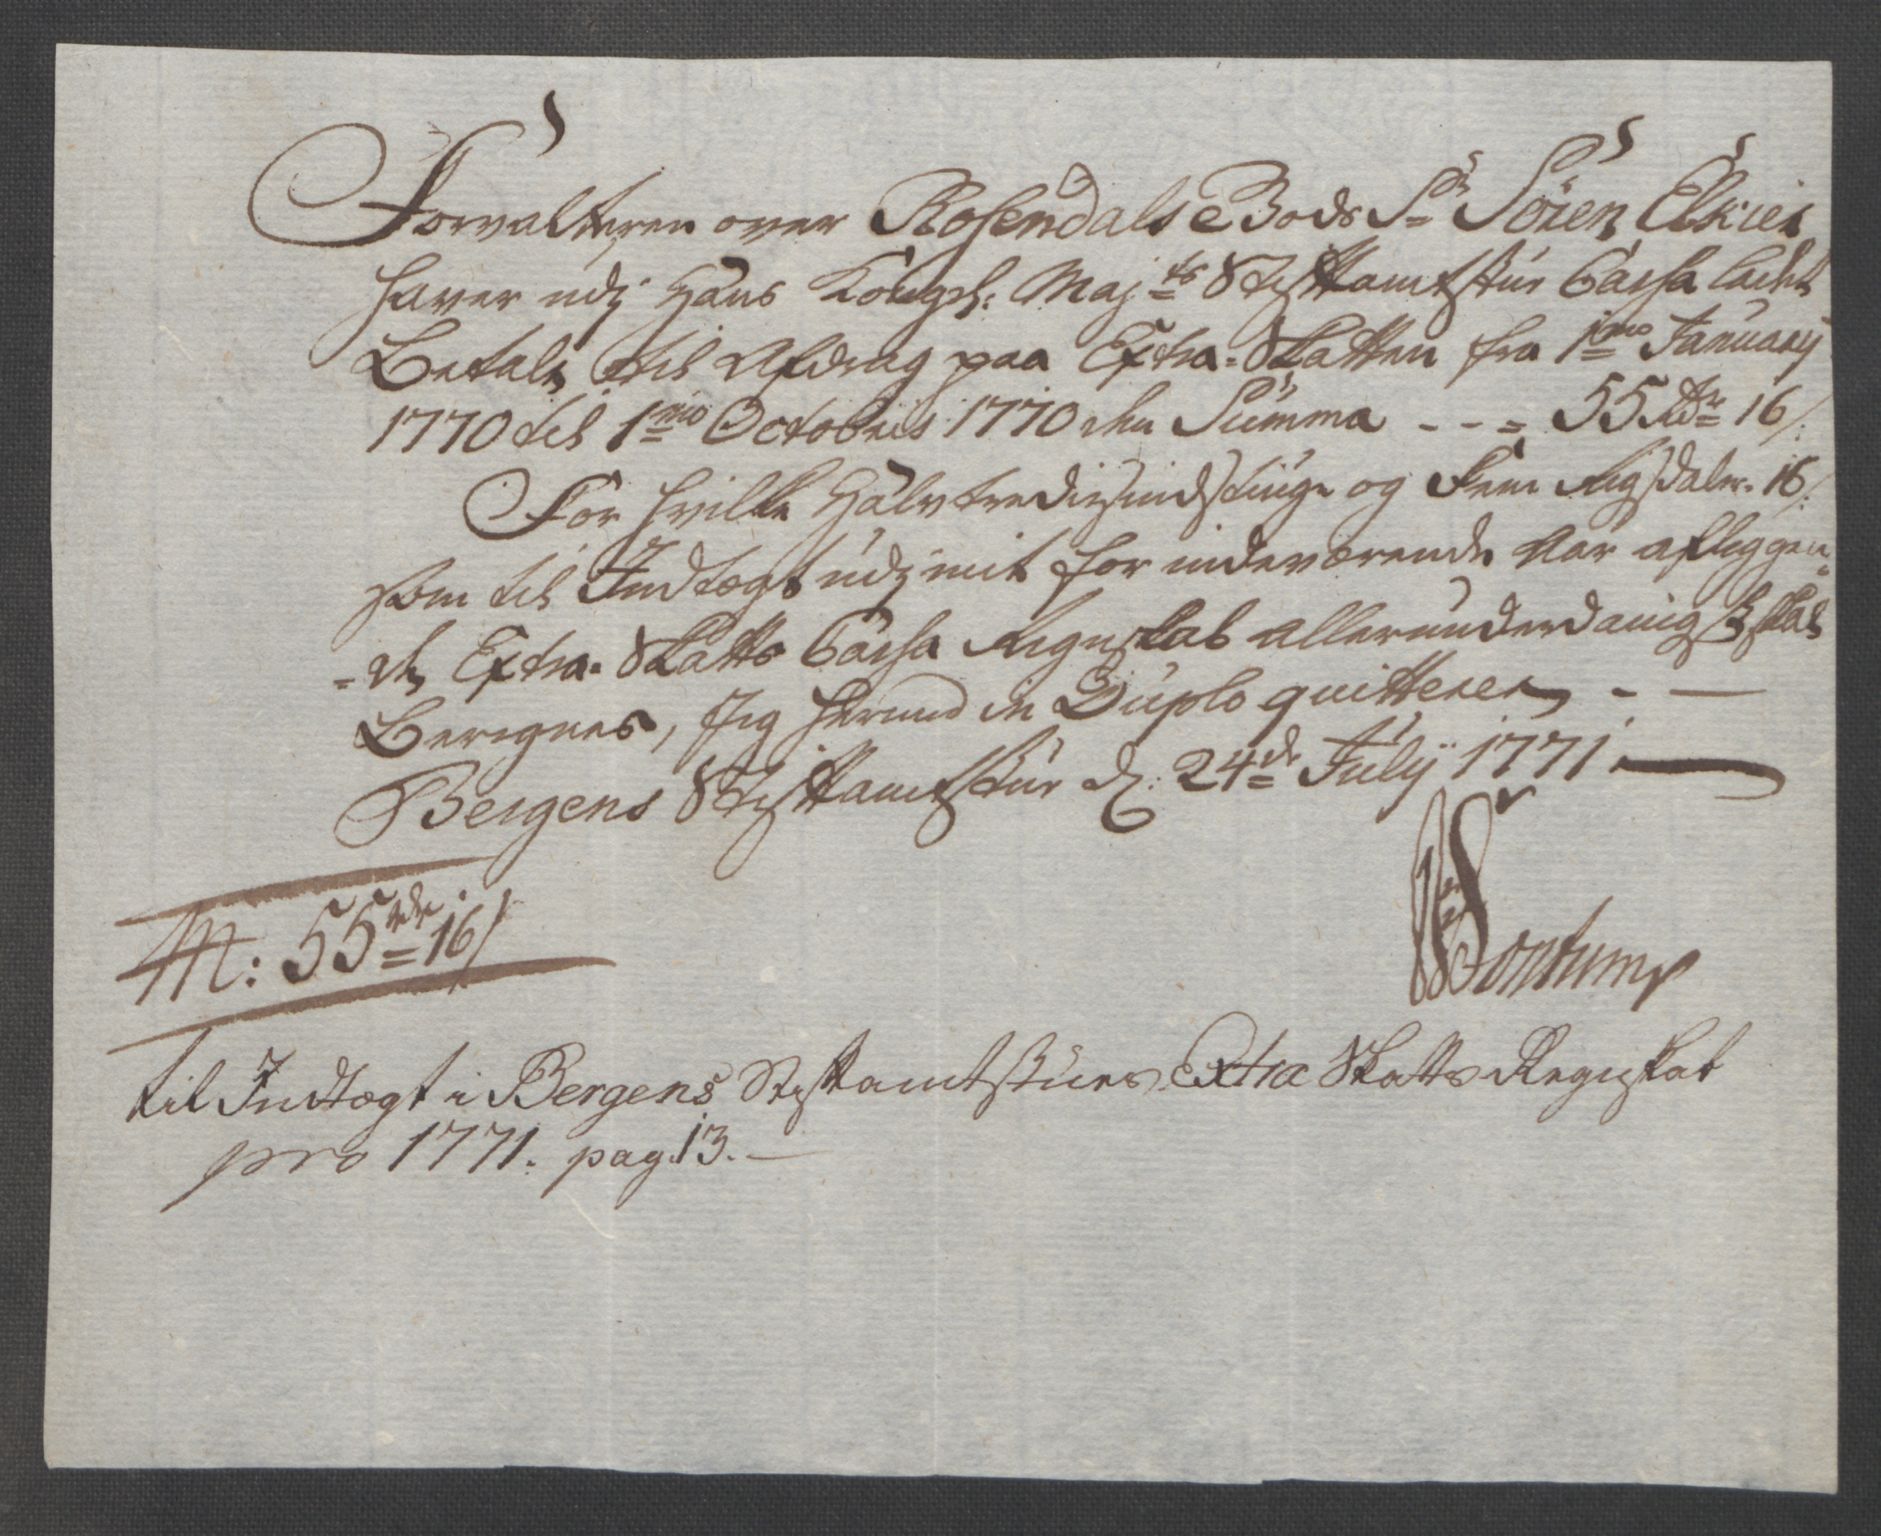 Forvalteren over Rosendals Gods Sr Sören Elkier
haver udj Hans Kongel: Majts Stiftamtstue Cassa ladet
Betale til Afdrag paa Extra-Skatten fra 1mo January
1770 til 1mo Octobris 1770 den Summa --- 55 Rdr 16 /:
For hvilke Halvtrediesindstiuge og Fem Rigsdaler 16 /:
som til Indtægt udj mit for indeværende Aar aflæggen-
-de Extra-Skatts Cassa Regnskab allerunderdanigst skal
Beregnes, Jeg herved in Duplo quitterer, - —
Bergens Stiftamtstue d: 24de July 1771. —
M: 55 rdr = 16 /
til Indtægt i Bergens Stiftamtstues Extra Skatts Regnskab
pro 1771. pag. 13. —